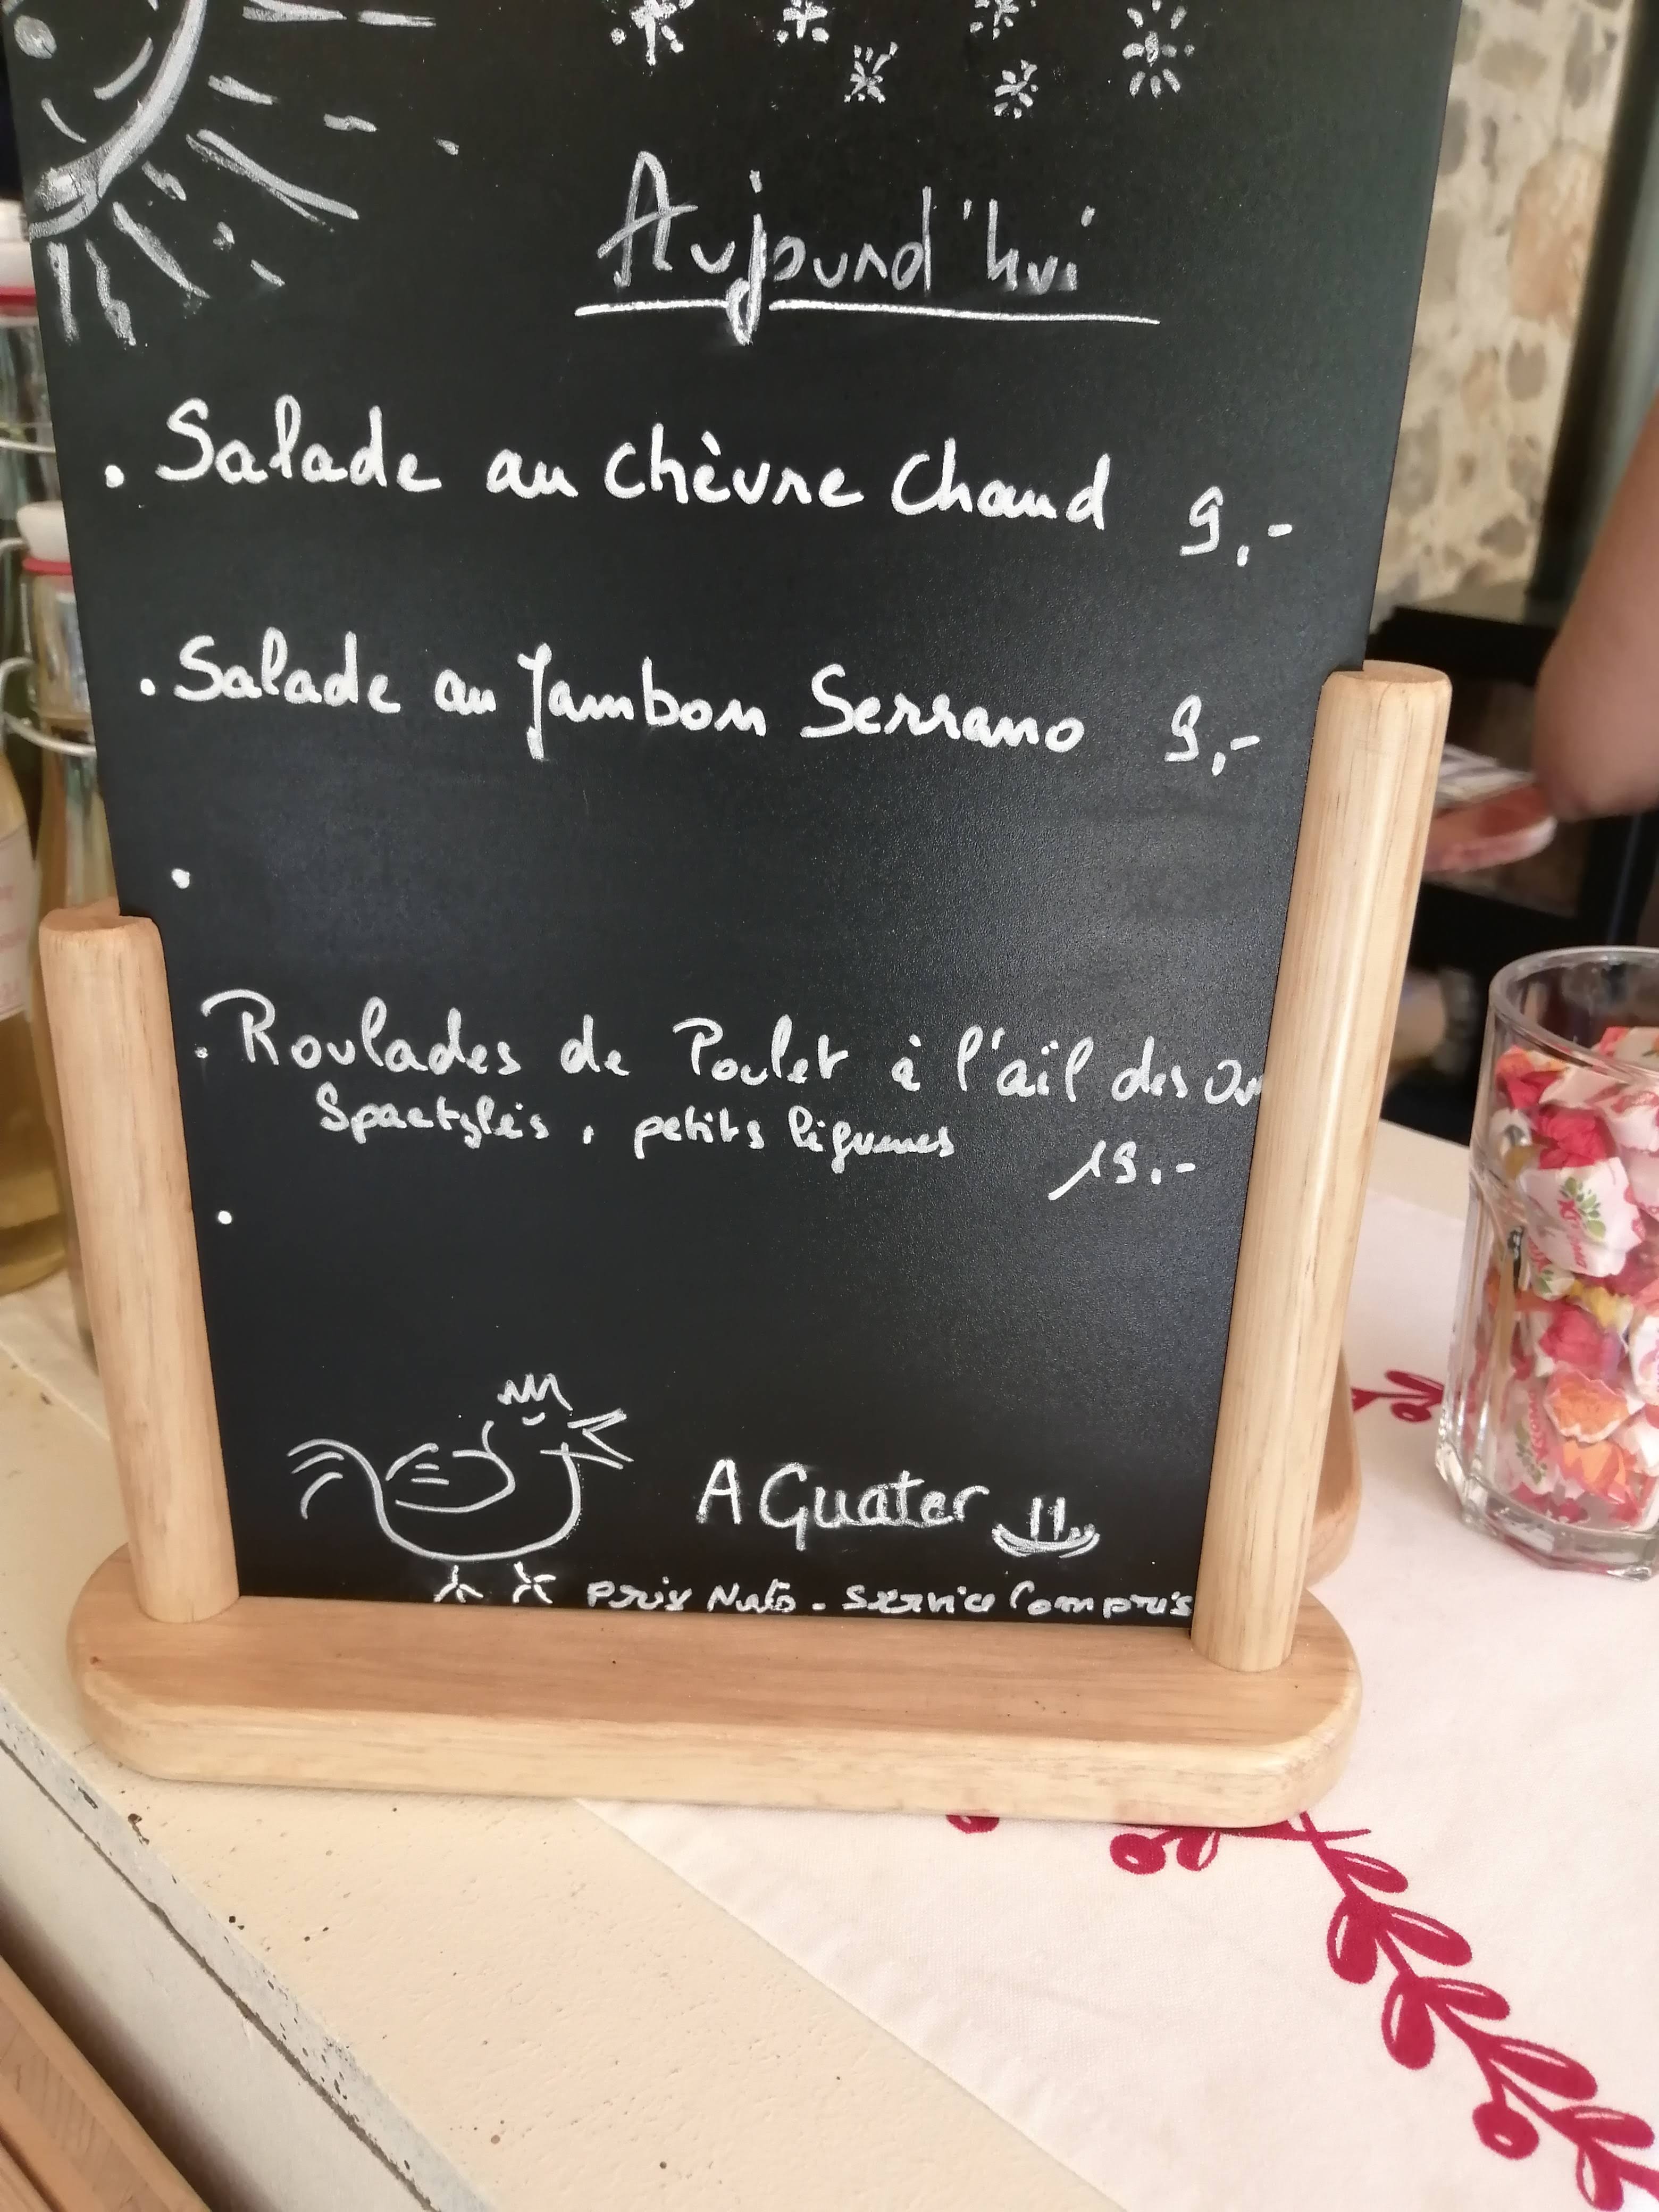 Aujourd'hui
. Salade au chèvre Chaud 9,-
. Salade au Jambon Serrano 9,-
.
. Roulades de Poulet à l'aïl des Ou
Spaetzlés, petits légumes 19.-
.
A Guater
Prix Nets - Service Compris